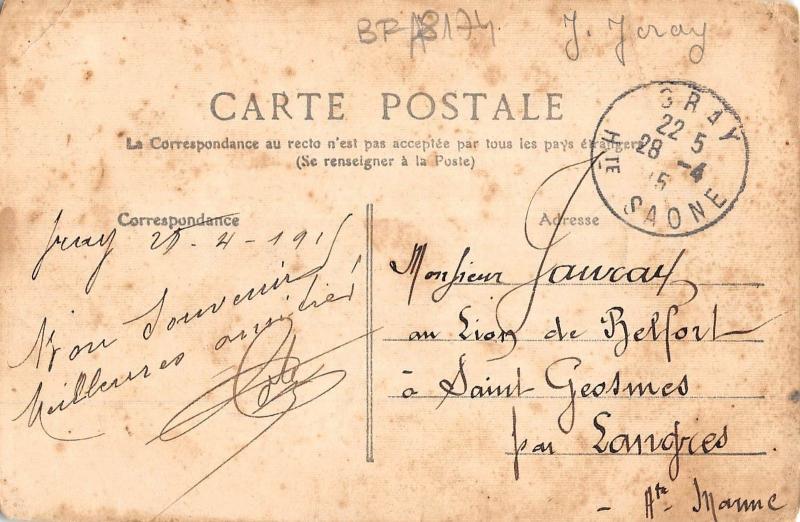 BFA8174
J. Jeray
CARTE POSTALE
La Correspondance au recto n'est pas acceptée par tous les pays étrangers
(Se renseigner à la Poste)
GRAY
22 5
28 -4
15
HTE SAONE
Correspondance
Gray 28-4-1915
Bon Souvenir
Meilleures amitiés
Adresse
Monsieur Jauray
au Lion de Belfort
à Saint-Geosmes
par Langres
- Hte Marne